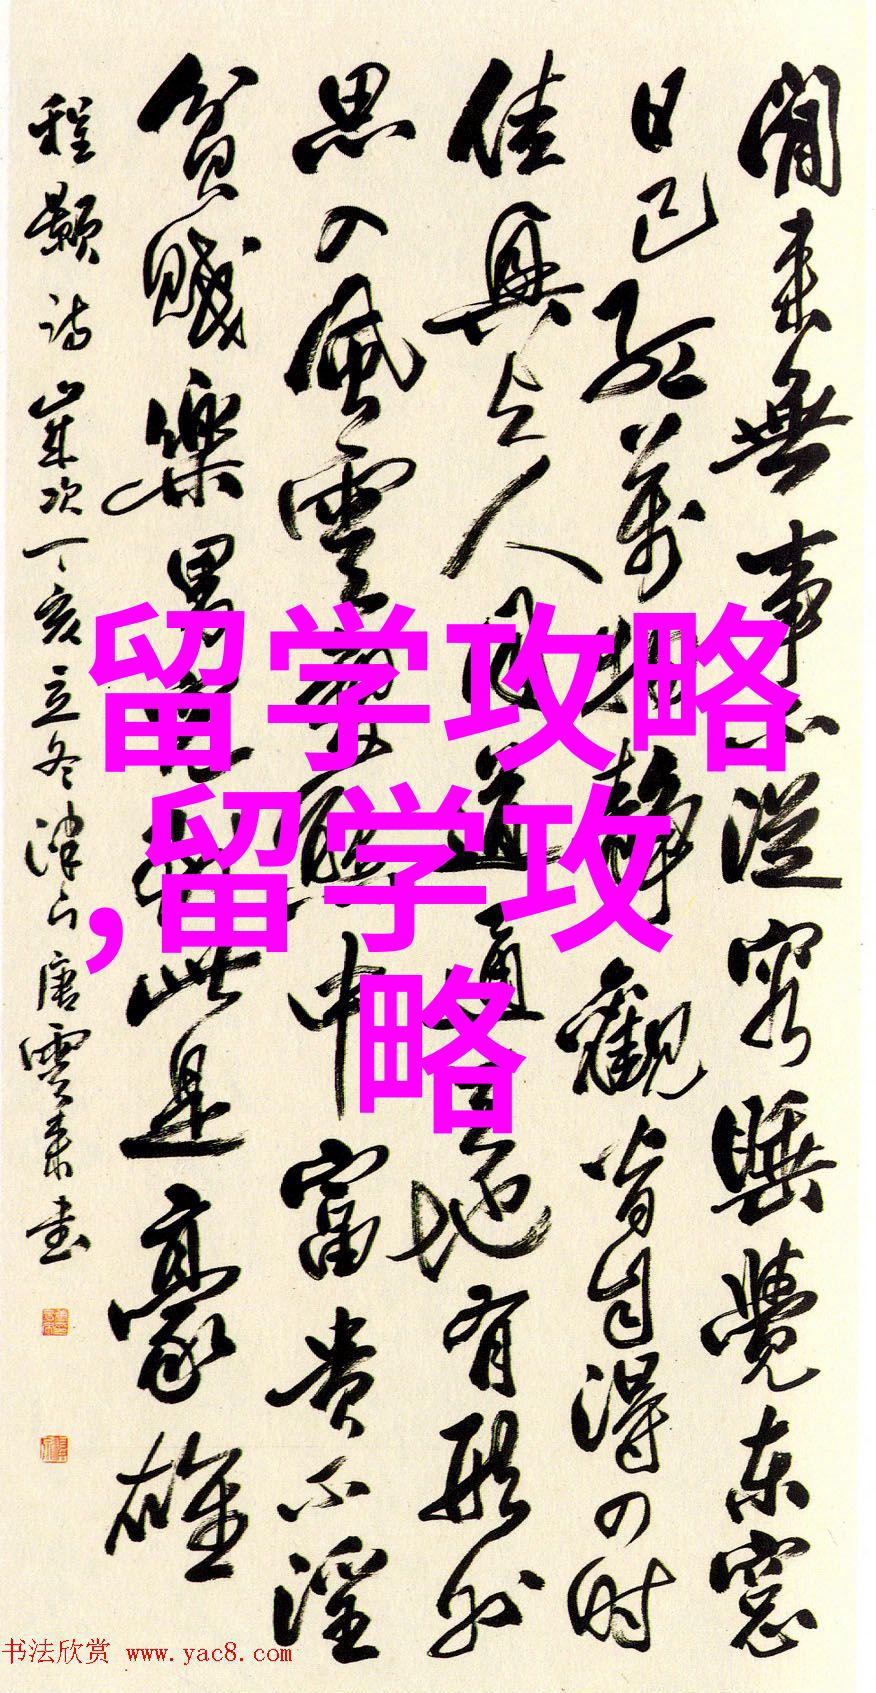 閒来無事不從容睡覺东窓
日已红萬物静觀皆自得四时
佳興与人同道通天地有形外
思入風雲變態中富贵不淫
貧賤樂男兒到此是豪雄
程颢诗歲次丁亥立冬津门唐雲来书
留学攻略
,留学攻
略
书法欣赏 www.yac8.com